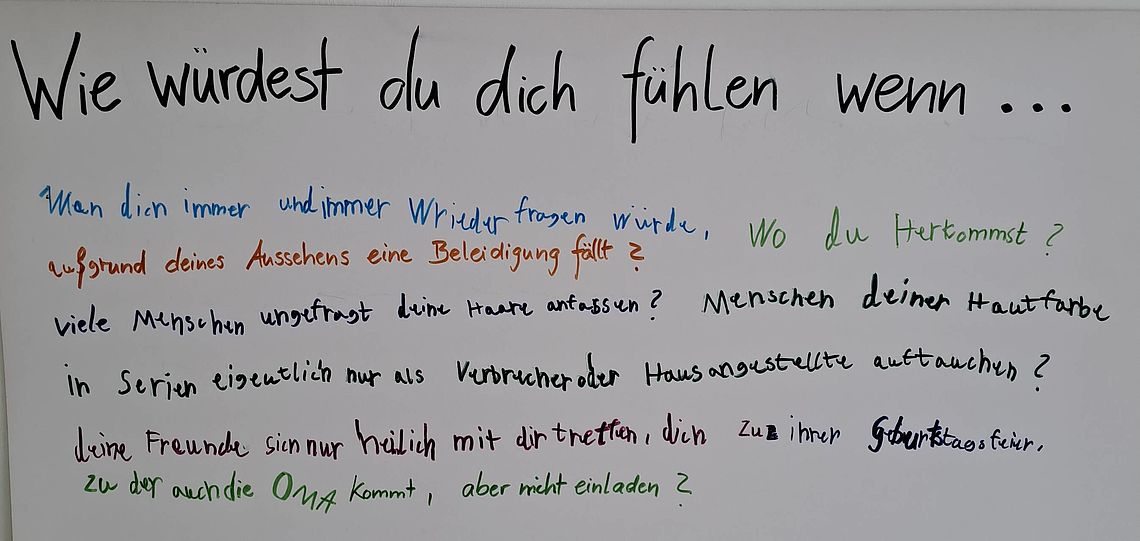 Wie würdest du dich fühlen wenn ...
Man dich immer und immer Wrieder fragen würde, Wo du Herkommst ?
aufgrund deines Aussehens eine Beleidigung fällt ?
viele Menschen ungefragt deine Haare anfassen ? Menschen deiner Hautfarbe
in Serien eigentlich nur als Verbrecher oder Hausangestellte auftauchen ?
deine Freunde sich nur heilich mit dir treffen, dich zu ihrer Geburtstagsfeier,
zu der auch die OMA kommt, aber nicht einladen ?